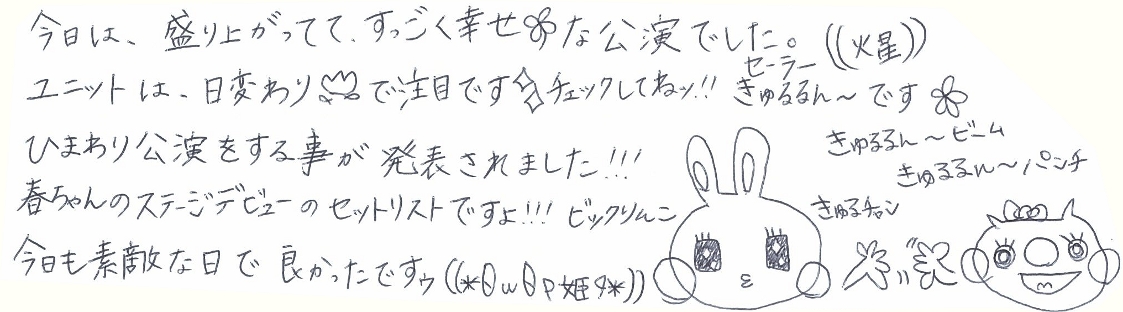 今日は、盛り上がってて、すっごく幸せな公演でした。((火星))
ユニットは、日変わりで注目ですチェックしてねッ!! セーラーきゅるるん～です
ひまわり公演をする事が発表されました!!!
きゅるるん～ビーム
きゅるるん～パンチ
春ちゃんのステージデビューのセットリストですよ!!! ビックりんこ
きゅるチャン
今日も素敵な日で良かったですゥ((*θωθP姫タ*))